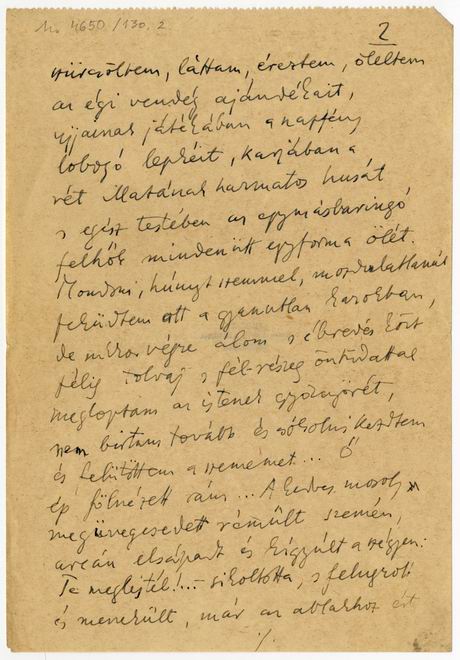 M. 4650/130.2
2
szürcsöltem, láttam, éreztem, öleltem
az égi vendég ajándékait,
ujjainak játékában a napfény
lobogó lepkéit, karjában a
rét illatának harmatos husát
s egész testében az egymásbaringó
felhők mindenütt egyforma ölét.
Mondom, húnyt szemmel, mozdulatlanúl
feküdtem ott a gyanutlan karokban,
de mikor végre álom s ébredés közt
félig tolvaj s fél-részeg öntudattal
megloptam az istenek gyönyörét,
nem birtam tovább és csókolni kezdtem
és felütöttem a szememet... Ő
ép fölnézett rám... A kedves mosoly
megüvegesedett rémült szemén,
arcán elsápadt és kigyúlt a szégyen:
Te meglestél!... sikoltotta, s felugrott
és menekült, már az ablakhoz ért
./.